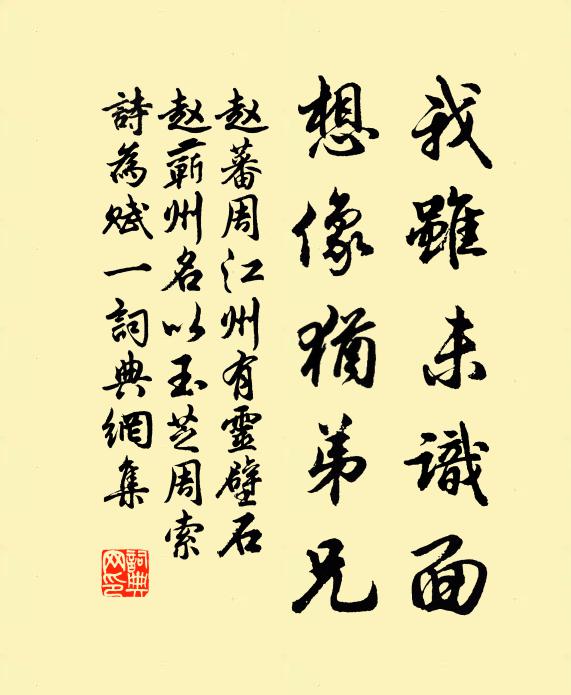 我雖未識面
想像猶弟兄
赵蕃周江州有靈壁石
赵蕲州名以玉芝周索
詩為赋一詞典網集
詞典网印